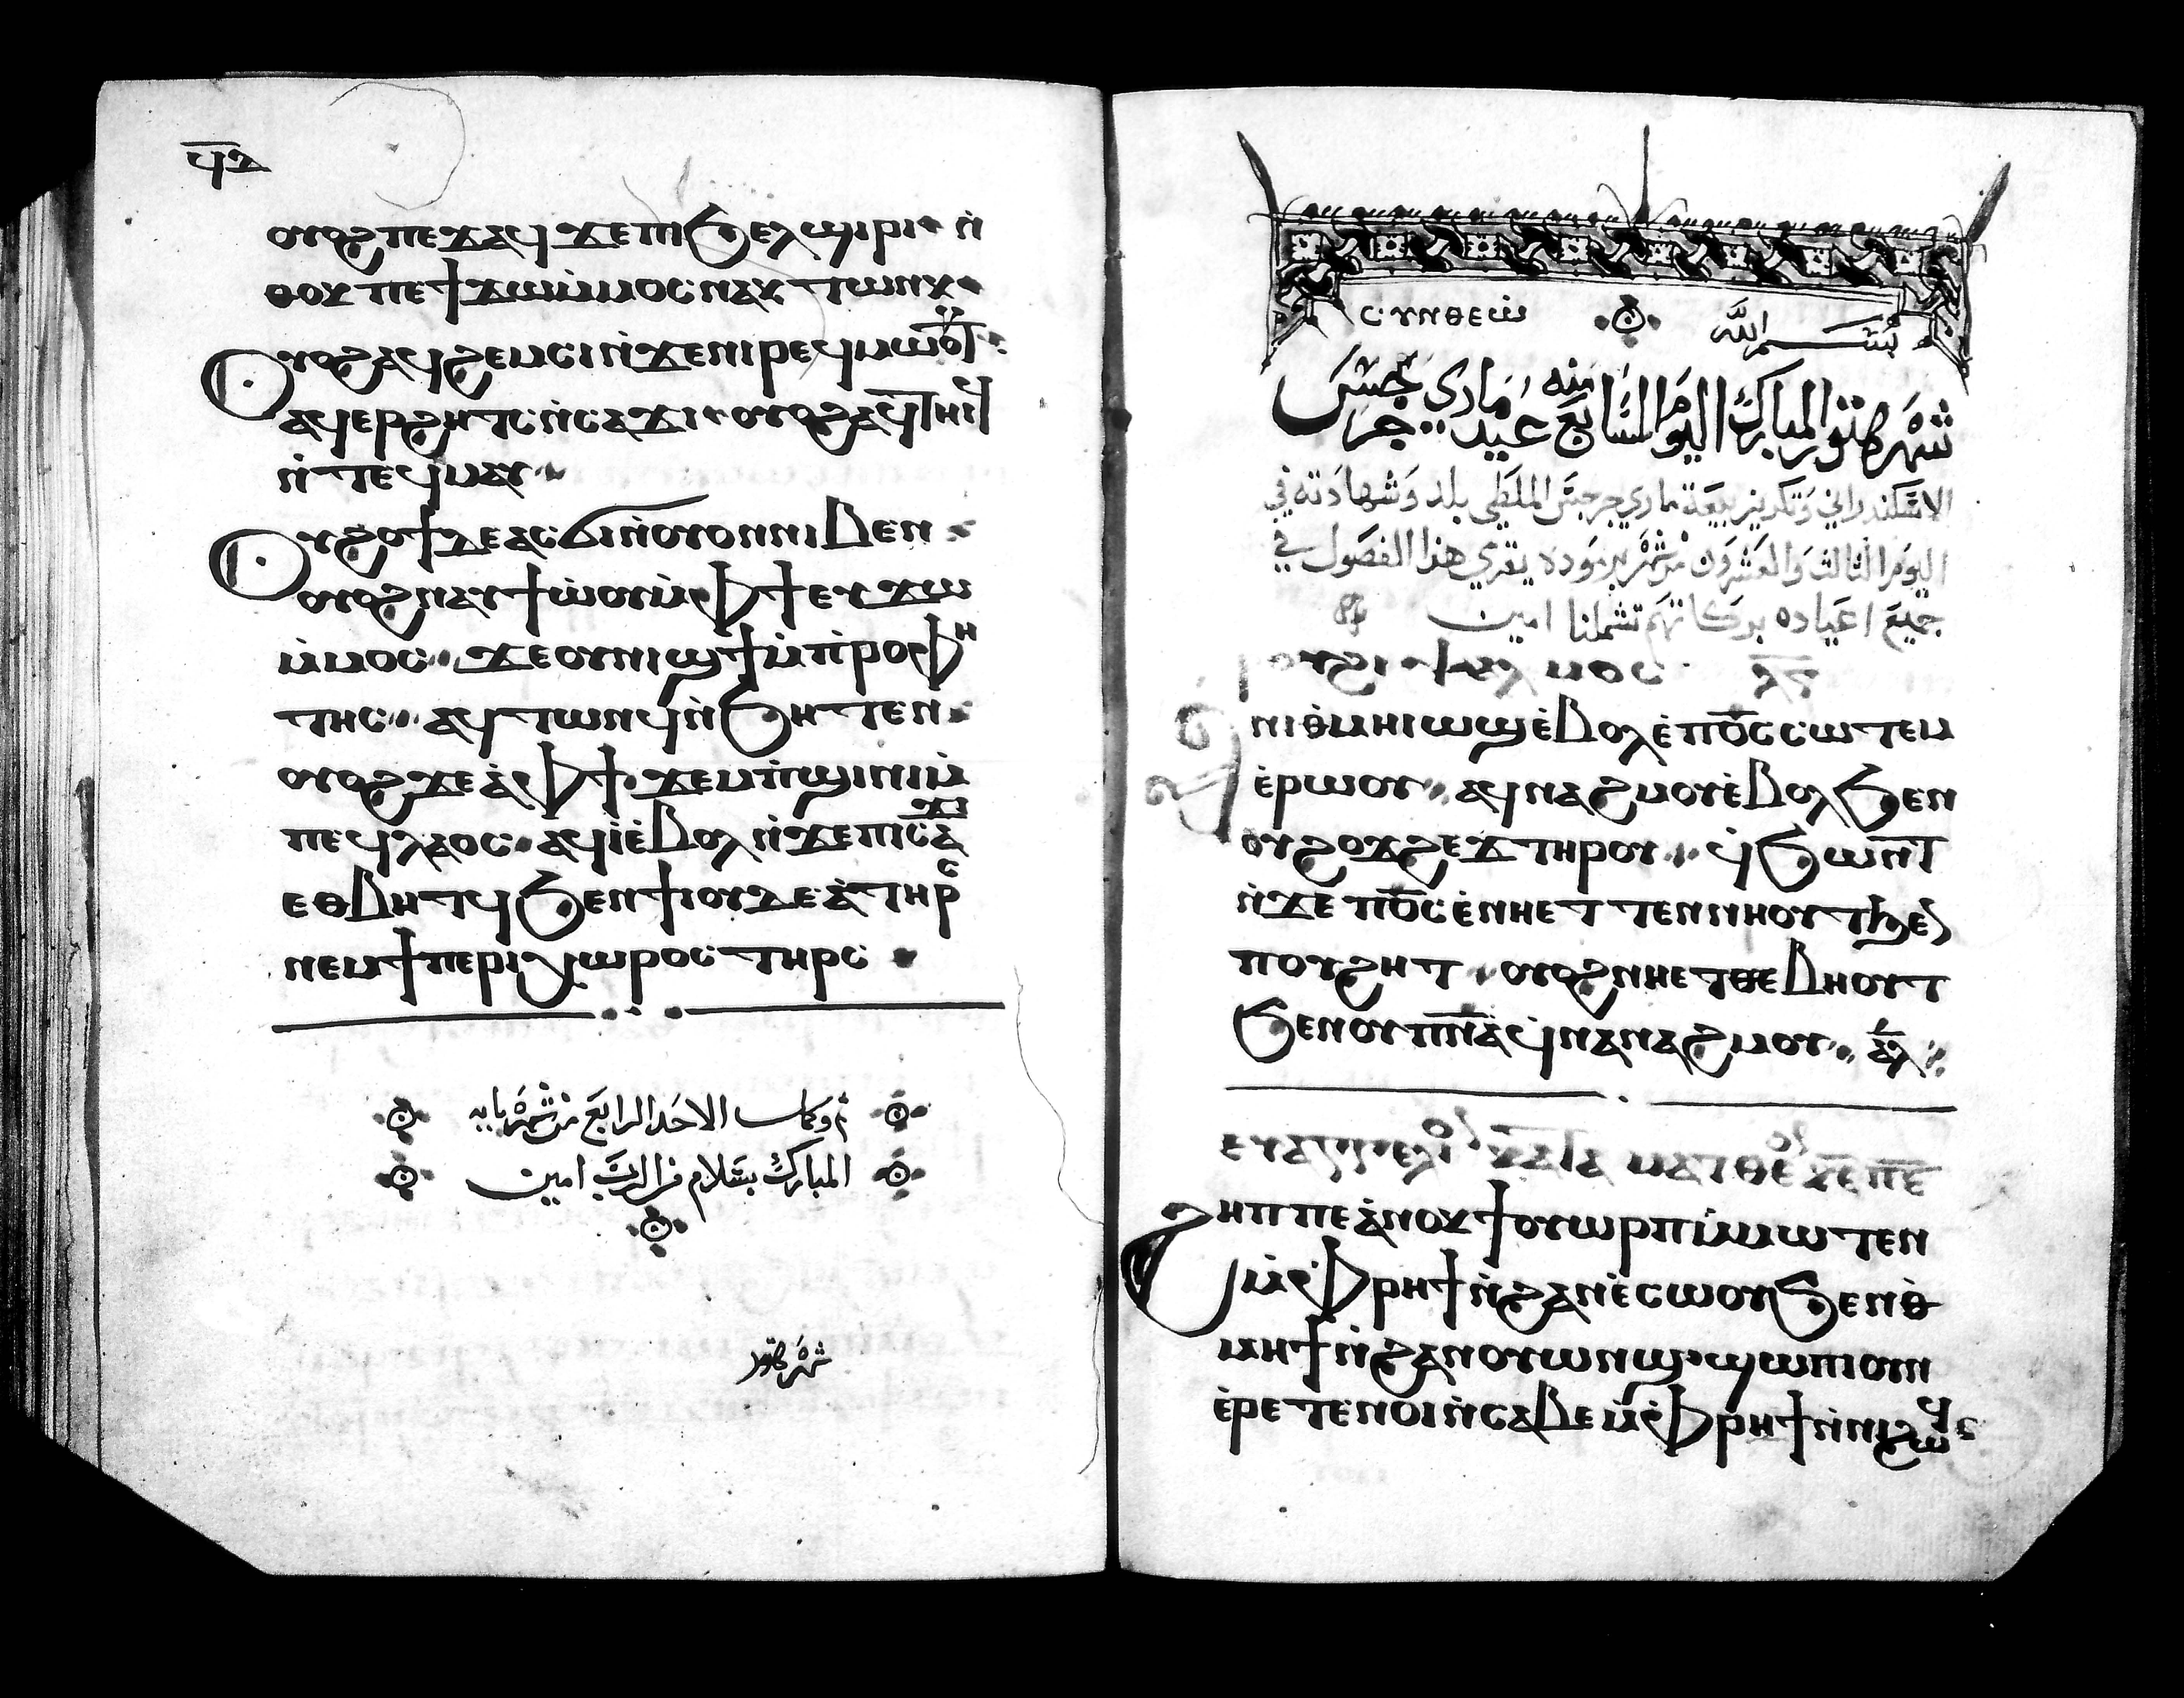 ϥⲇ
ⲟⲩⲟϩ ⲡⲉϫⲁϥ ϫⲉ ⲡⲓϧⲉⲗϣⲓⲣⲓ ⲛ̇
ⲑⲟⲕ ⲡⲉϯϫⲱ ⲙ̇ⲙⲟⲥ ⲛⲁⲕ ⲧⲱⲛⲕ
Ⲟⲩⲟϩ ⲁϥϩⲉⲙⲥⲓ ⲛ̇ϫⲉ ⲡⲓⲣⲉϥⲙⲱⲟⲩⲧ
ⲁϥⲉⲣϩⲏⲧⲥ ⲛ̇ⲥⲁϫⲓ ⲟⲩⲟϩ ⲁϥⲧⲏⲓϥ
ⲛ̇ⲧⲉϥⲙⲁⲩ
Ⲟⲩϩⲟϯ ⲇⲉ ⲁⲥϭⲓ ⲛ̇ⲟⲩⲟⲛ ⲛⲓⲃⲉⲛ
ⲟⲩⲟϩ ⲛⲁⲩϯⲱ̇ⲟⲩ ⲙ̇ⲫϯ ⲉⲩϫⲱ
ⲙ̇ⲙⲟⲥ ϫⲉ ⲟⲩⲛⲓϣϯ ⲙ̇ⲡⲣⲟⲫⲏ
ⲧⲏⲥ ⲁϥⲧⲱⲛϥ ⲛ̇ϧⲏⲧⲉⲛ
ⲟⲩⲟϩ ϫⲉ ⲁ̇ⲫϯ ϫⲉⲙⲡϣⲓⲛⲓ ⲙ̇
ⲡⲉϥⲗⲁⲟⲥ ⲁϥⲓ̇ ⲉ̇ⲃⲟⲗ ⲛ̇ϫⲉ ⲡⲓⲥⲁϫⲓ
ⲉⲑⲃⲏⲧϥ ϧⲉⲛ ϯⲓⲟⲩⲇⲉⲁ̇ ⲧⲏⲣⲥ
ⲛⲉⲙ ϯⲡⲉⲣⲓⲭⲱⲣⲟⲥ ⲧⲏⲣⲥ
تم وكمل الاحد الرابع من شهر بابه
المبارك بسلام من الرب امين
شهر هتور
ⲥⲩⲛⲑⲉⲱ̇ بسم الله
شهر هتور المبارك اليوم السابع منه عيد ماري جرجس
الاسكندراني وتكريز بيعة ماري جرجس الملطي بلد وشهادته في
اليوم الثالث والعشرون من شهر برموده يقري هذا الفصول في
جميع اعياده بركاتهم تشملنا امين
ⲣⲟⲩϩⲓ ⲯⲁⲗⲙⲟⲥ ⲗⲅ
Ⲁ̇ ⲛⲓⲑ̇ⲙⲏⲓ ⲱϣ ⲉ̇ⲃⲟⲗ ⲉ̇ ⲡⲟ̅ⲥ̅ ⲥⲱⲧⲉⲙ
ⲉ̇ⲣⲱⲟⲩ ⲁϥⲛⲁϩⲙⲟⲩ ⲉ̇ⲃⲟⲗ ϧⲉⲛ
ⲟⲩϩⲟϫϩⲉϫ ⲧⲏⲣⲟⲩ ϥ̇ϧⲱⲛⲧ
ⲛ̇ϫⲉ ⲡⲟ̅ⲥ̅ ⲉ̇ⲛⲏⲉⲧⲧⲉⲛⲛⲏⲟⲩⲧ ϧⲉⲛ
ⲡⲟⲩϩⲏⲧ ⲟⲩⲟϩ ⲛⲏⲉⲧⲑⲉⲃⲏⲟⲩⲧ
ϧⲉⲛ ⲟⲩⲡ̅ⲛ̅ⲁ̅ ϥ̇ⲛⲁⲛⲁϩⲙⲟⲩ ⲁⲗ
ⲉⲩⲁⲅⲅⲉⲗⲓⲟⲛ ⲕⲁⲧⲁ ⲙⲁⲧⲑⲉⲟⲛ ⲕⲉ
Ϩⲏⲡⲡⲉ ⲁ̇ⲛⲟⲕ ϯⲟⲩⲱⲣⲡ ⲙ̇ⲙⲱⲧⲉⲛ
ⲙ̇ⲫⲣⲏϯ ⲛ̇ϩⲁⲛⲉ̇ⲥⲱⲟⲩ ϧⲉⲛ ⲑ̇
ⲙⲏϯ ⲛ̇ϩⲁⲛⲟⲩⲱⲛϣ ϣⲱⲡⲓ ⲟⲩⲛ
ⲉ̇ⲣⲉⲧⲉⲛⲟⲓ ⲛ̇ⲥⲁⲃⲉ ⲙ̇ⲫⲣⲏϯ ⲛ̇ⲛⲓϩⲱϥ